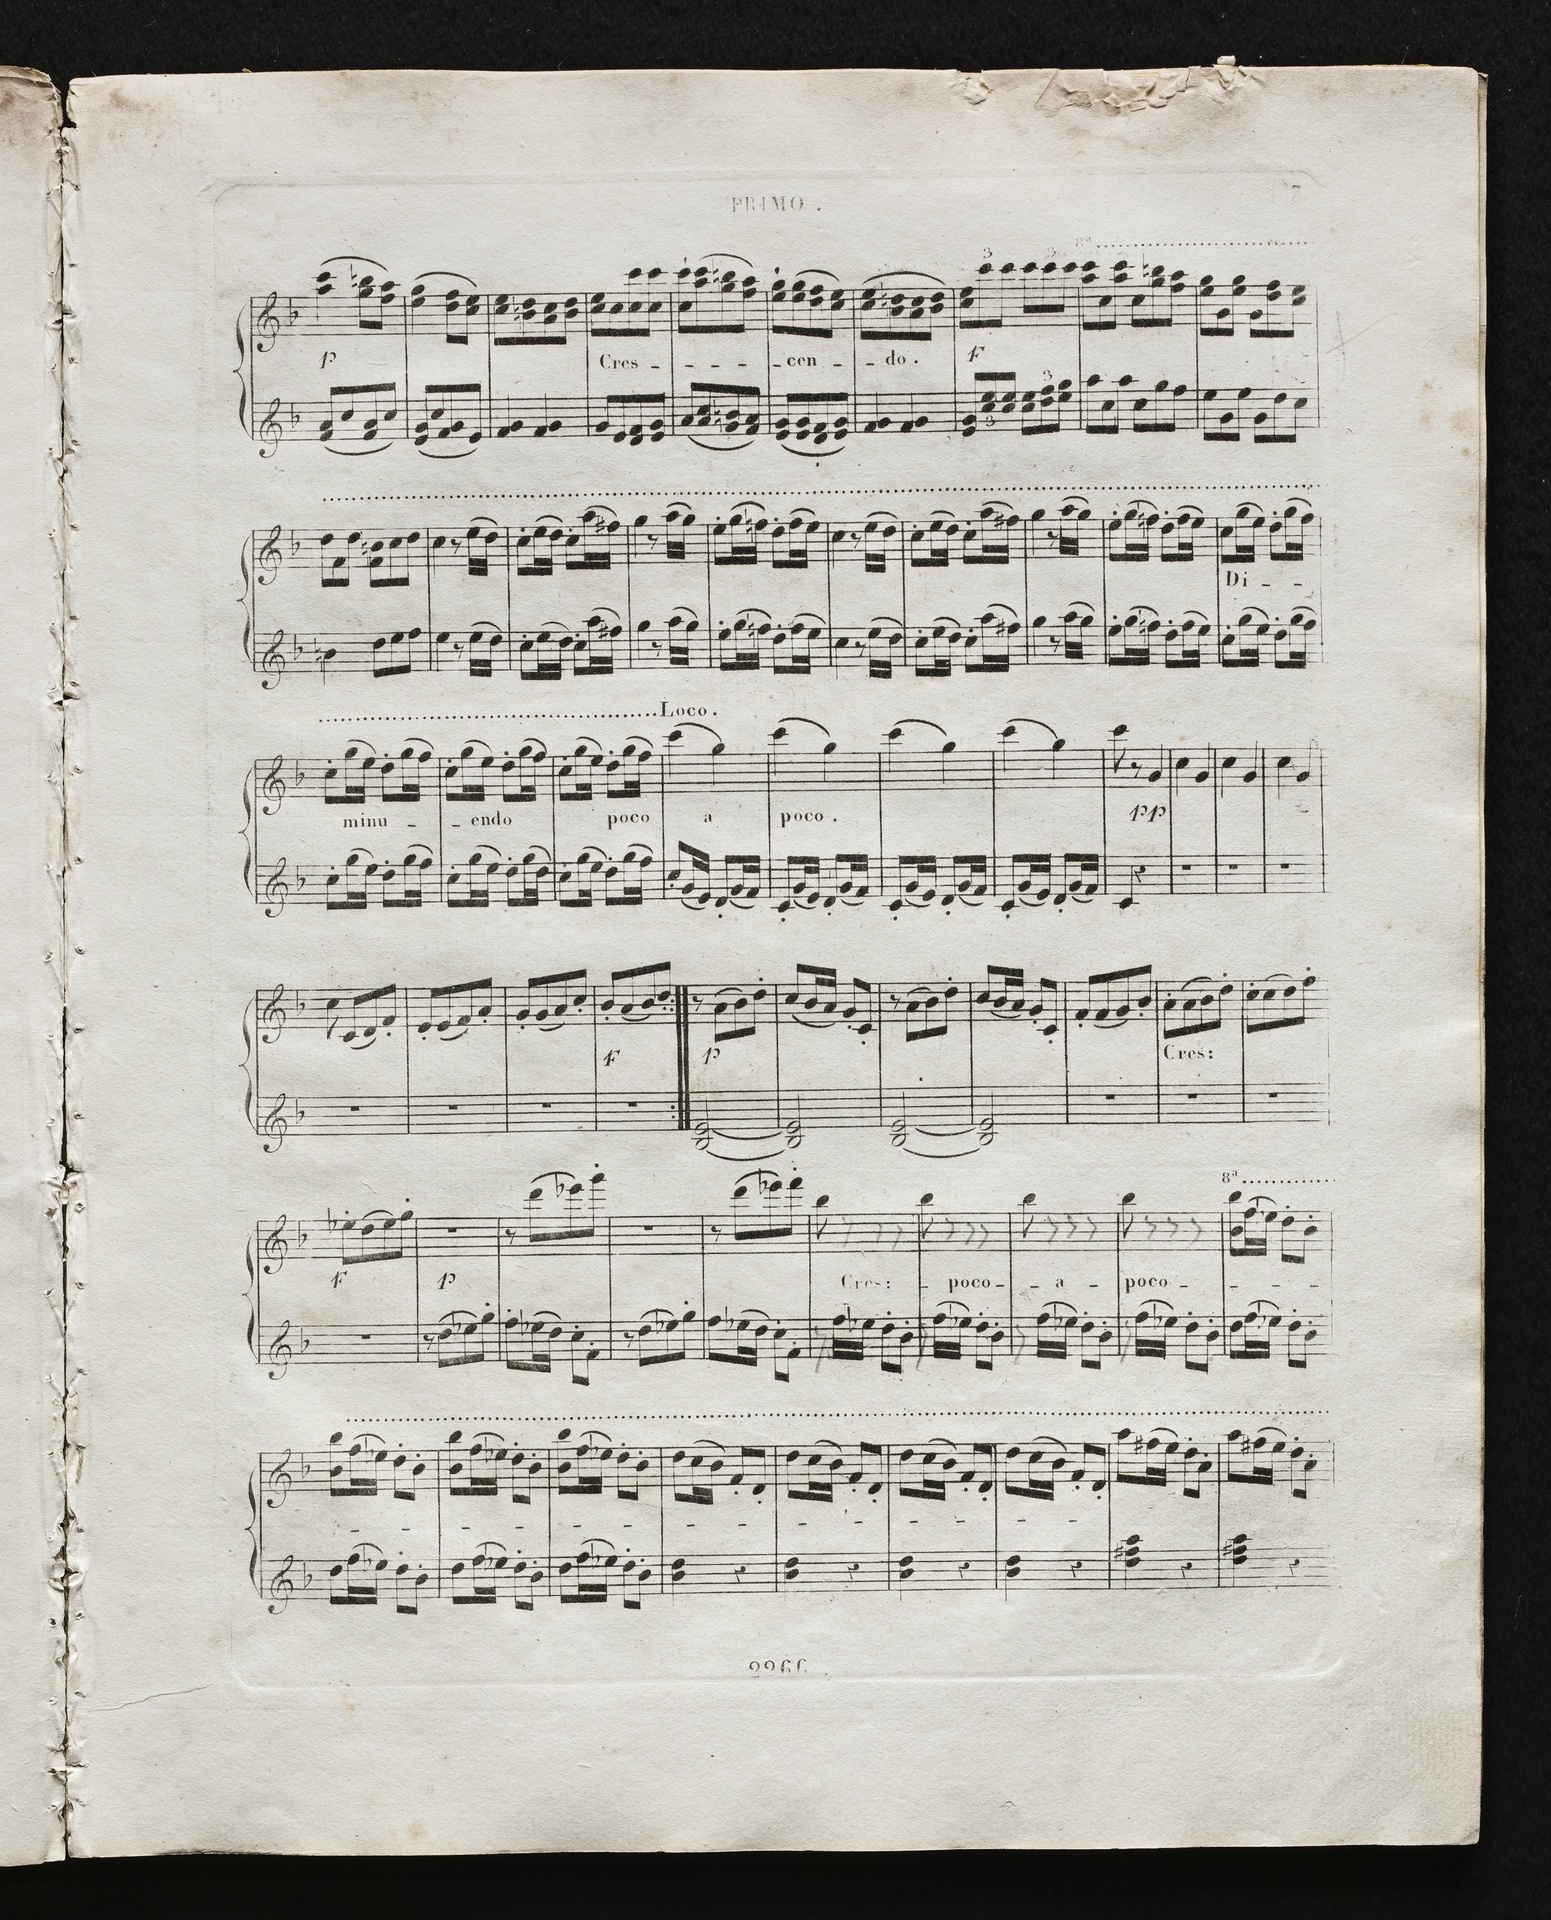 PRIMO.
7
3 3 8ª
P Cres - - - - - cen - - do. F
3 3
Di - -
Loco.
minu - - endo poco a poco. PP
F P Cres:
8ª
F P Cres: - poco - - a - poco - - - -
- - - - - - - - - - - - - -
2266